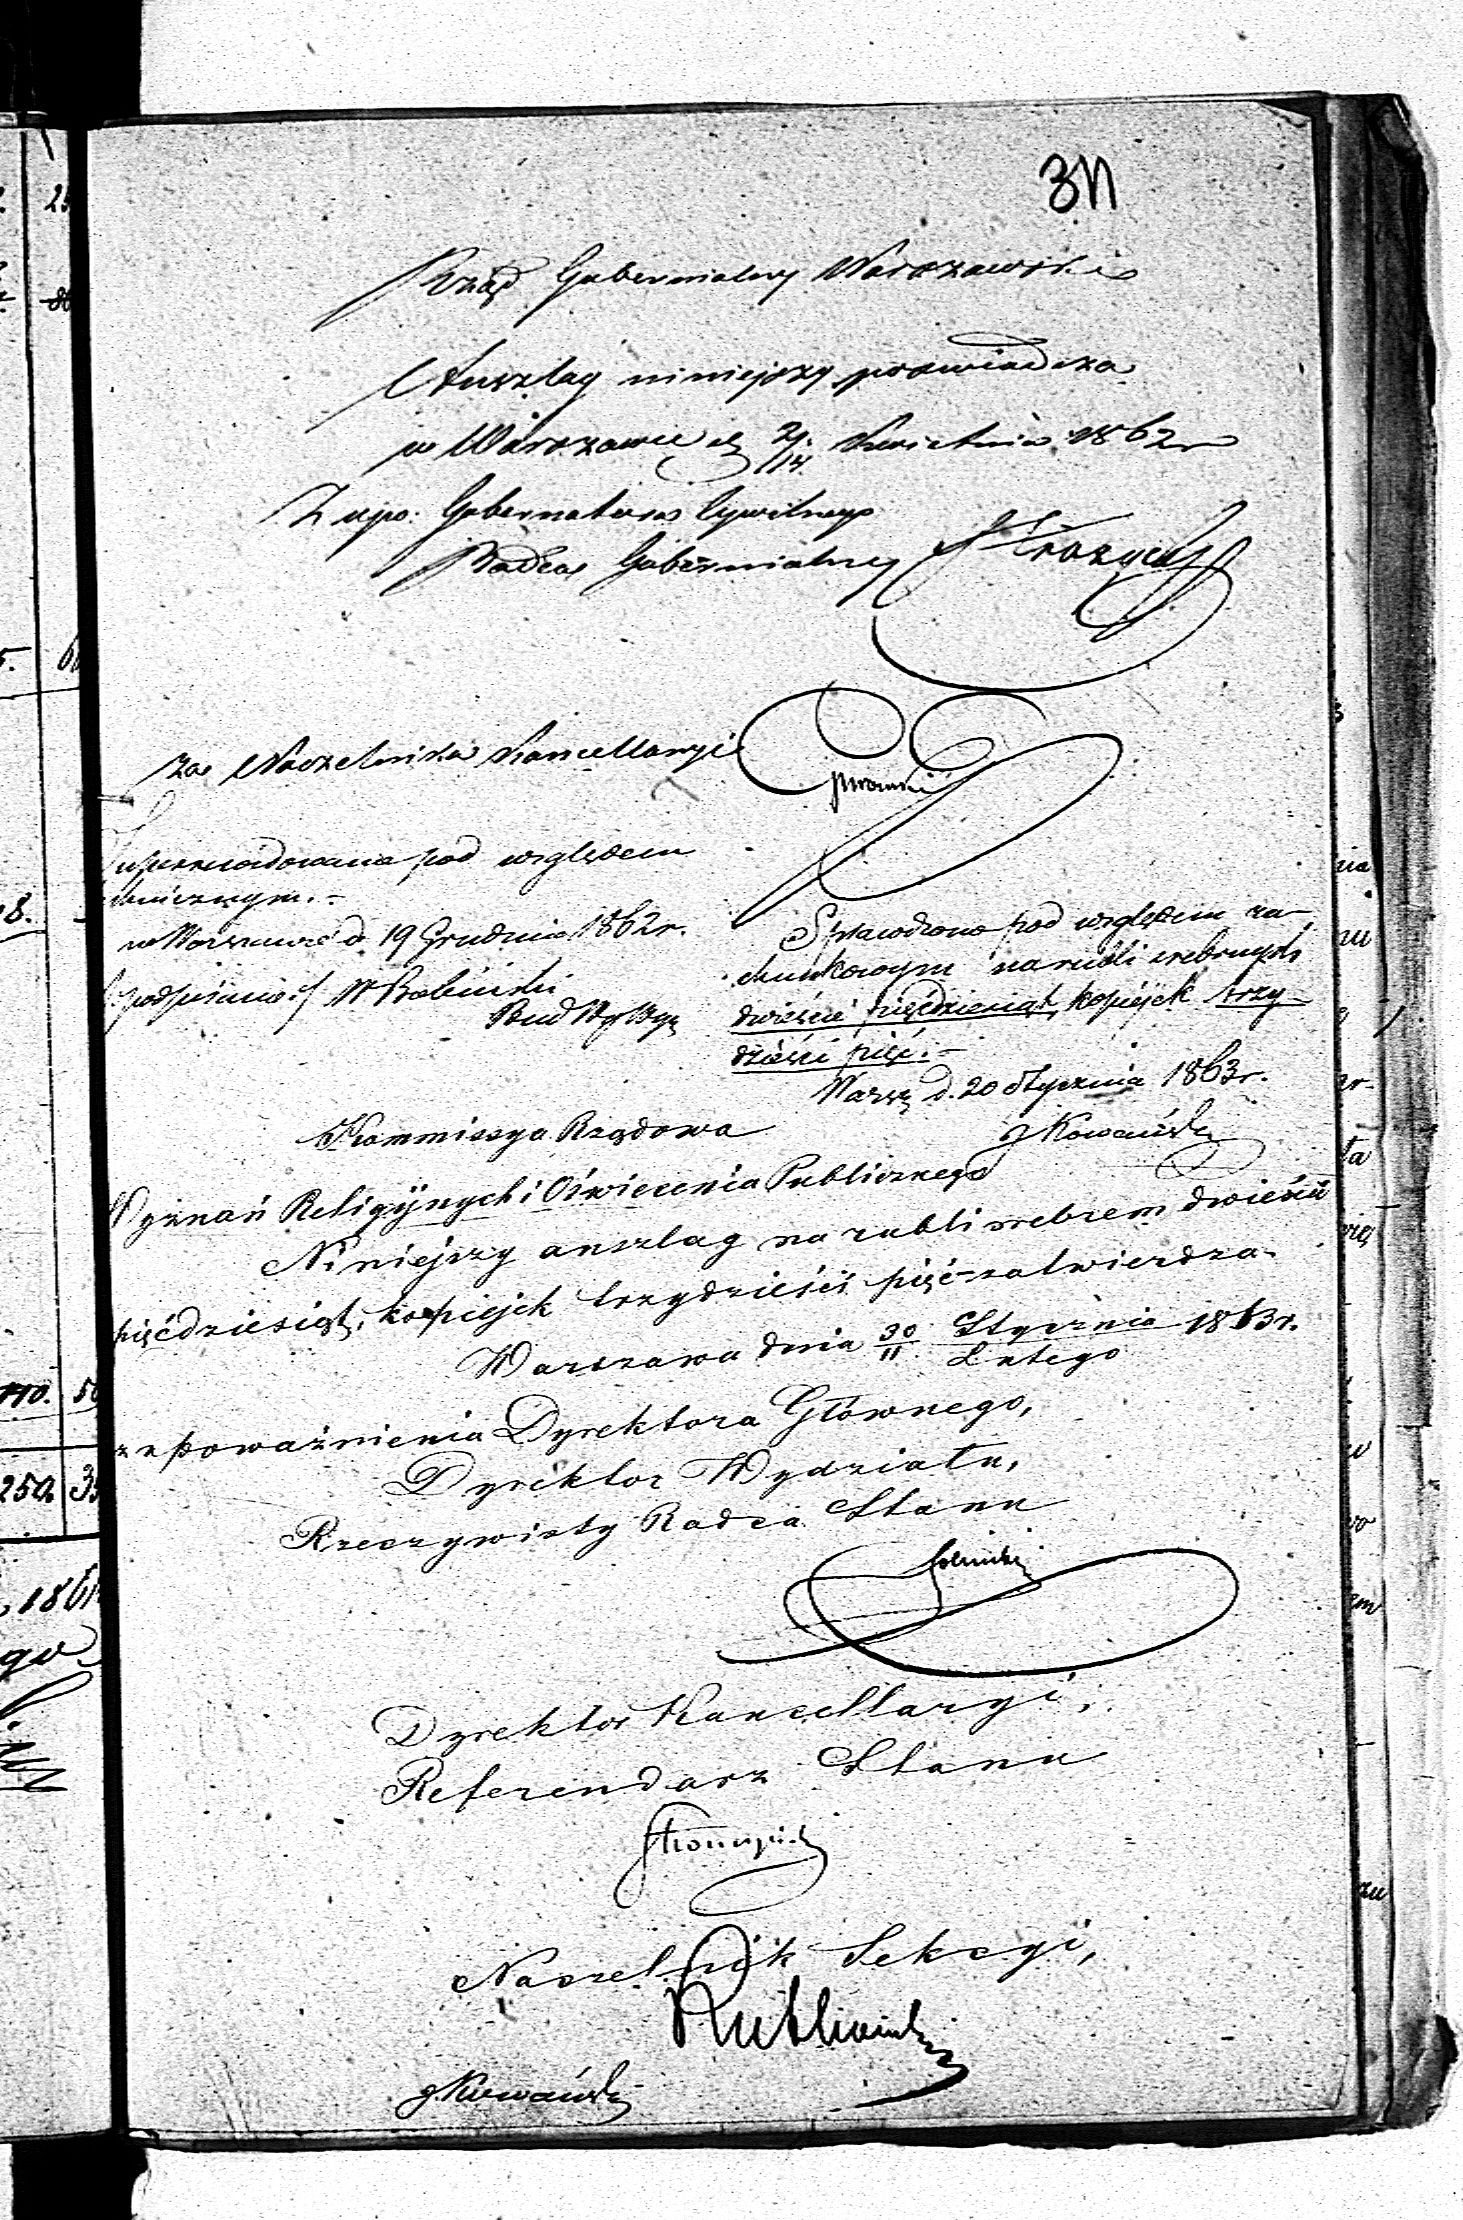 311
Rząd Gubernialny Warszawski
Anszlag niniejszy poświadcza
w Warszawie d 2/14 Kwietnia 1862 r
Z upo: Gubernatora Cywilnego
Radca Gubernialny
za Naczelnika Kancellaryi
Superrewidowano pod względem
technicznym. -
w Warszawie d 19 Grudnia 1862 r.
(podpisano:)
Sprawdzono pod względem ra-
chunkowym na rubli srebrnych
dwieście pięćdziesiąt, kopiejek trzy-
dzieści pięć. -
Warsz. d. 20 Stycznia 1863 r.
Kommissya Rządowa
Wyznań Religijnych i Oświecenia Publicznego
Niniejszy anszlag na rubli srebrem dwieście
pięćdziesiąt, kopiejek trzydzieści pięć zatwierdza.
Warszawa dnia 30/11 Stycznia/Lutego 1863 r.
z upoważnienia Dyrektora Głównego,
Dyrektor Wydziału,
Rzeczywisty Radca Stanu
Dyrektor Kancellaryi,
Referendarz Stanu
Naczelnik Sekcyi,